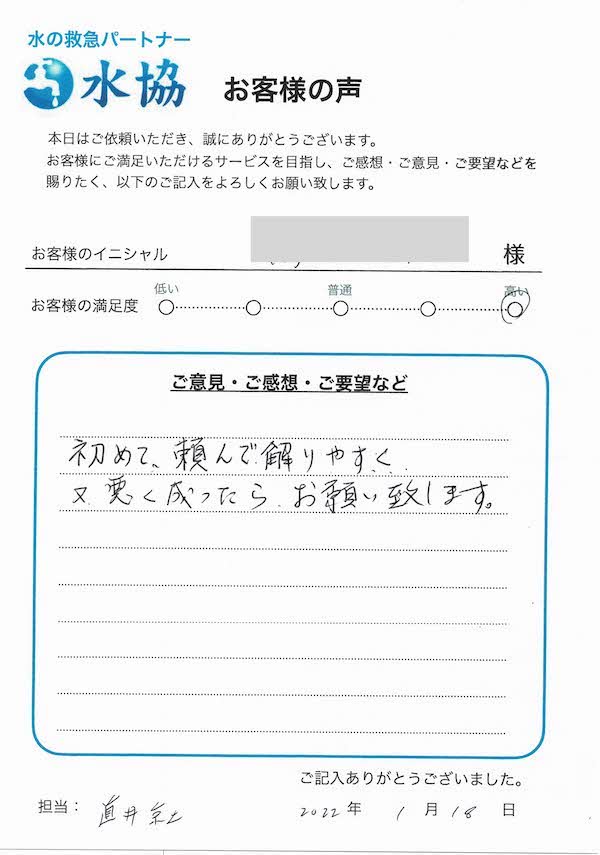 水の救急パートナー
水協 お客様の声
本日はご依頼いただき、誠にありがとうございます。
お客様にご満足いただけるサービスを目指し、ご感想・ご意見・ご要望などを
賜りたく、以下のご記入をよろしくお願い致します。
お客様のイニシャル 様
低い 普通 高い
お客様の満足度
ご意見・ご感想・ご要望など
初めて、頼んで解りやすく、
又、悪く成ったら、お願い致します。
ご記入ありがとうございました。
担当： 直井 2022 年 1 月 18 日